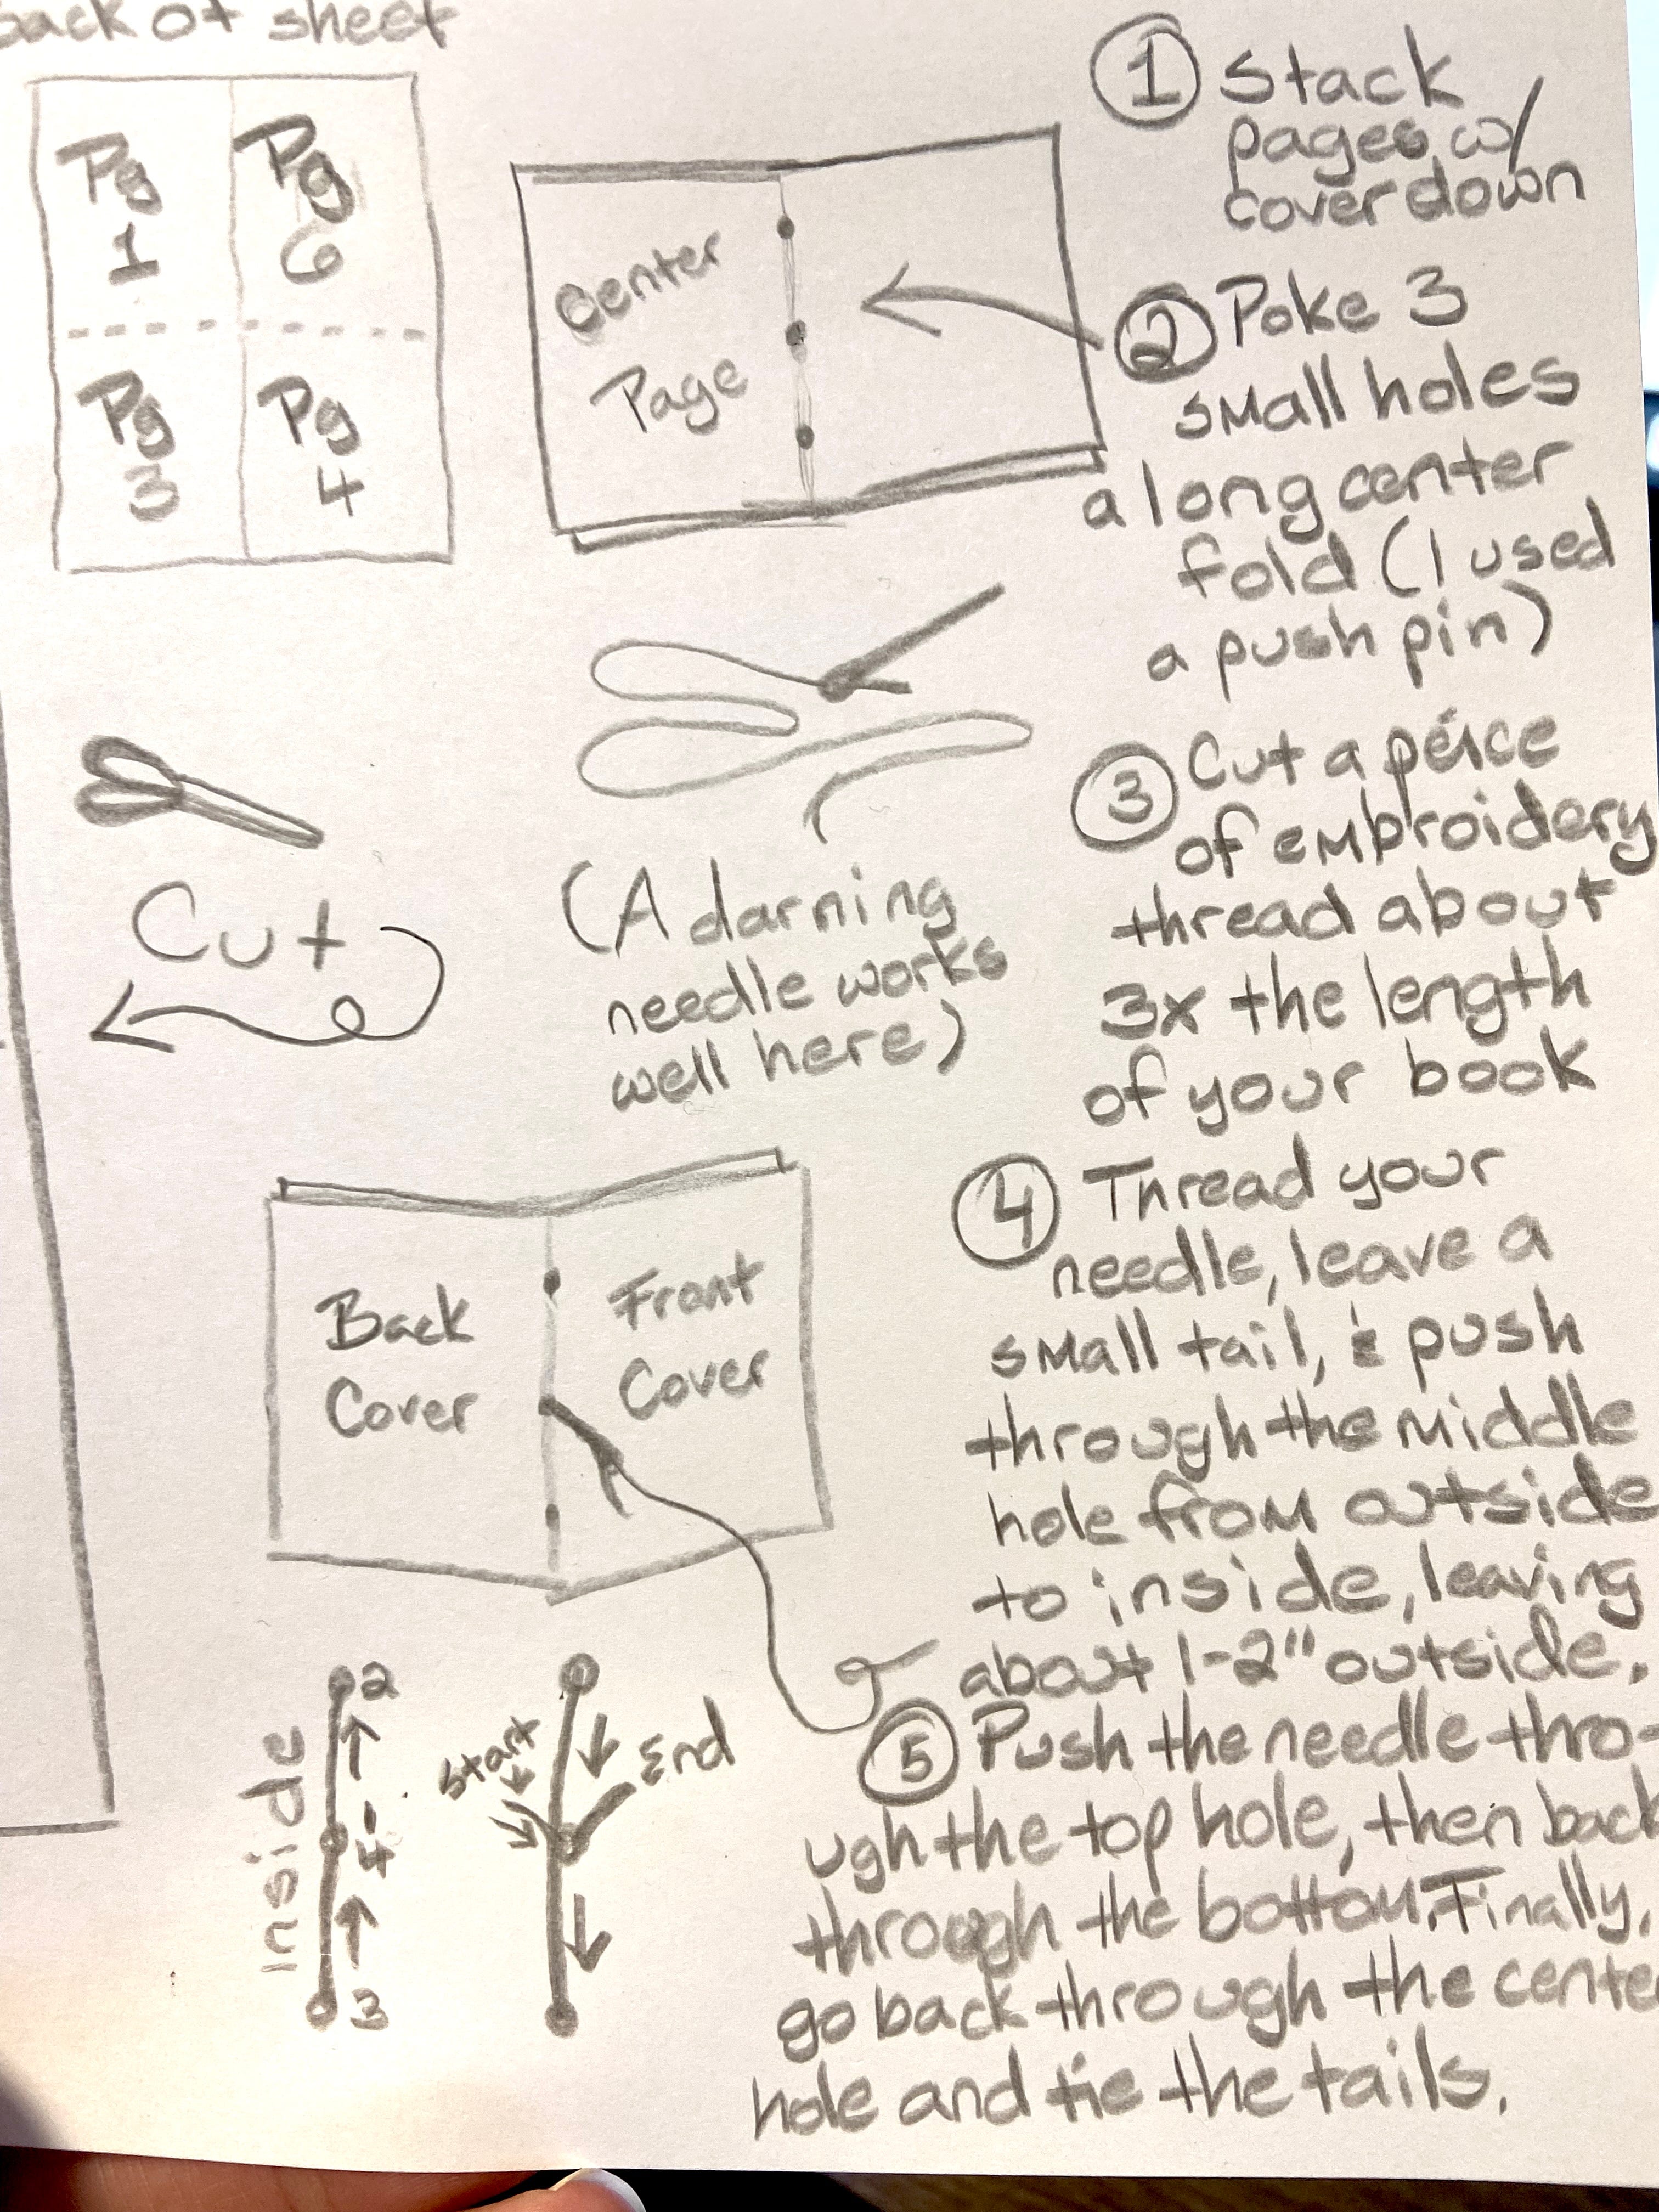 back of sheet
Pg
1
Pg
6
Pg
3
Pg
4
Center
Page
① Stack
pages w/
cover down
② Poke 3
small holes
along center
fold (I used
a push pin)
Cut
(A darning
needle works
well here)
③ Cut a peice
of embroidery
thread about
3x the length
of your book
Back
Cover
Front
Cover
④ Thread your
needle, leave a
small tail, & push
through the middle
hole from outside
to inside, leaving
about 1-2" outside.
⑤ Push the needle thro-
ugh the top hole, then back
through the bottom. Finally,
go back through the cente
hole and tie the tails.
Inside
2
1
4
3
Start
End